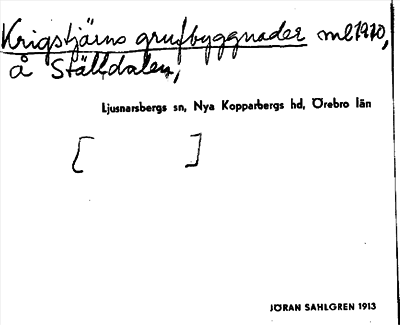 Krigstjärns grufbyggnader ml1910,
å Ställdalen,
Ljusnarsbergs sn, Nya Kopparbergs hd, Örebro län
[ ]
JÖRAN SAHLGREN 1913